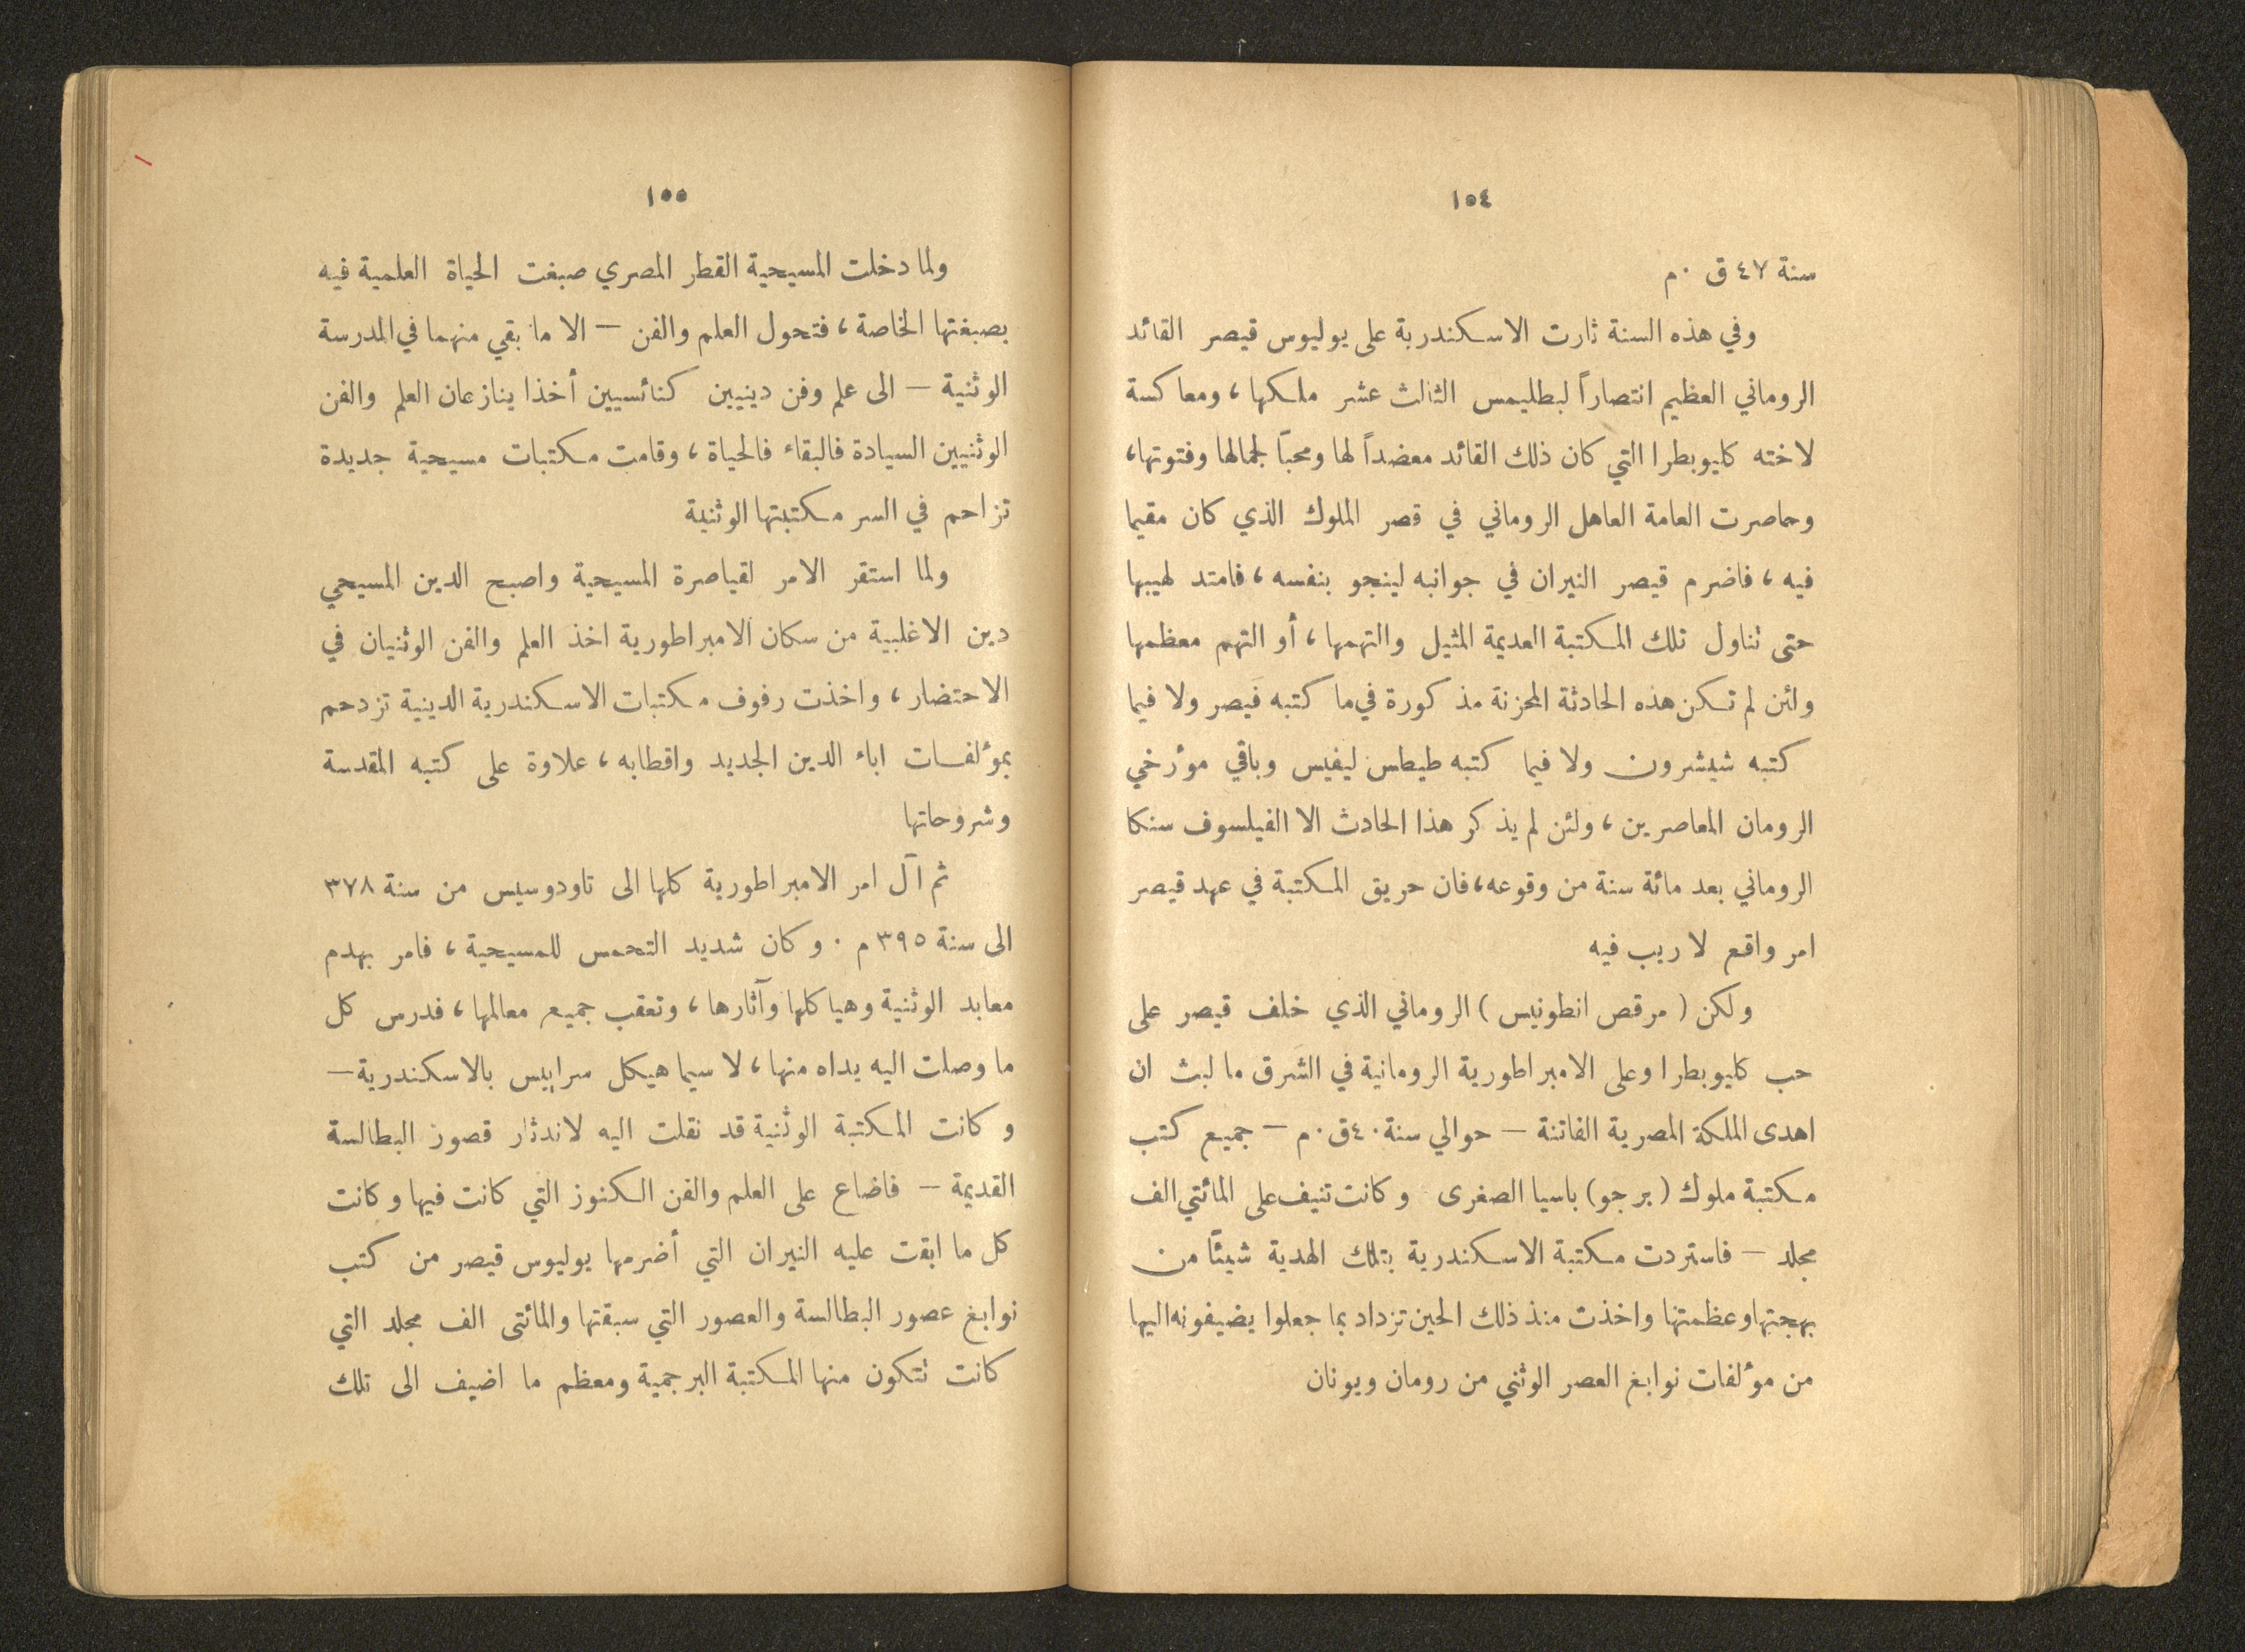 ١٥٤
سنة ٤٧ ق ٠ م
وفي هذه السنة ثارت الاسكندرية على يوليوس قيصر القائد
الروماني العظيم انتصاراً لبطليمس الثالث عشر ملكها، ومعاكسة
لاخته كليوبطرا التي كان ذلك القائد معضداً لها ومحبًا لجمالها وفتوتها،
وحاصرت العامة العاهل الروماني في قصر الملوك الذي كان مقيما
فيه، فاضرم قيصر النيران في جوانبه لينجو بنفسه، فامتد لهيبها
حتى تناول تلك المكتبة العديمة المثيل والتهمها، أو التهم معظمها
ولئن لم تكن هذه الحادثة المحزنة مذكورة في ما كتبه قيصر ولا فيما
كتبه شيشرون ولا فيما كتبه طيطس ليفيس وباقي مؤرخي
الرومان المعاصرين، ولئن لم يذكر هذا الحادث الا الفيلسوف سنكا
الروماني بعد مائة سنة من وقوعه، فان حريق المكتبة في عهد قيصر
امر واقع لا ريب فيه
ولكن (مرقص انطونيس) الروماني الذي خلف قيصر على
حب كليوبطرا وعلى الامبراطورية الرومانية في الشرق ما لبث ان
اهدى الملكة المصرية الفاتنة — حوالي سنة ٤٠ ق٠م — جميع كتب
مكتبة ملوك (برجو) باسيا الصغرى وكانت تنيف على المائتي الف
مجلد — فاستردت مكتبة الاسكندرية بتلك الهدية شيئًا من
بهجتها وعظمتها واخذت منذ ذلك الحين تزداد بما جعلوا يضيفونه اليها
من مؤلفات نوابغ العصر الوثني من رومان ويونان
١٥٥
ولما دخلت المسيحية القطر المصري صبغت الحياة العلمية فيه
بصبغتها الخاصة، فتحول العلم والفن — الا ما بقي منهما في المدرسة
الوثنية — الى علم وفن دينيين كنائسيين أخذا ينازعان العلم والفن
الوثنيين السيادة فالبقاء فالحياة، وقامت مكتبات مسيحية جديدة
تزاحم في السر مكتبتها الوثنية
ولما استقر الامر لقياصرة المسيحية واصبح الدين المسيحي
دين الاغلبية من سكان الامبراطورية اخذ العلم والفن الوثنيان في
الاحتضار، واخذت رفوف مكتبات الاسكندرية الدينية تزدحم
بمؤلفات اباء الدين الجديد واقطابه، علاوة على كتبه المقدسة
وشروحاتها
ثم آل امر الامبراطورية كلها الى تاودوسيس من سنة ٣٧٨
الى سنة ٣٩٥ م ٠ وكان شديد التحمس للمسيحية، فامر بهدم
معابد الوثنية وهياكلها وآثارها، وتعقب جميع معالمها، فدرس كل
ما وصلت اليه يداه منها، لا سيما هيكل سرابيس بالاسكندرية —
وكانت المكتبة الوثنية قد نقلت اليه لاندثار قصور البطالسة
القديمة — فاضاع على العلم والفن الكنوز التي كانت فيها وكانت
كل ما ابقت عليه النيران التي أضرمها يوليوس قيصر من كتب
نوابغ عصور البطالسة والعصور التي سبقتها والمائتى الف مجلد التي
كانت تتكون منها المكتبة البرجمية ومعظم ما اضيف الى تلك